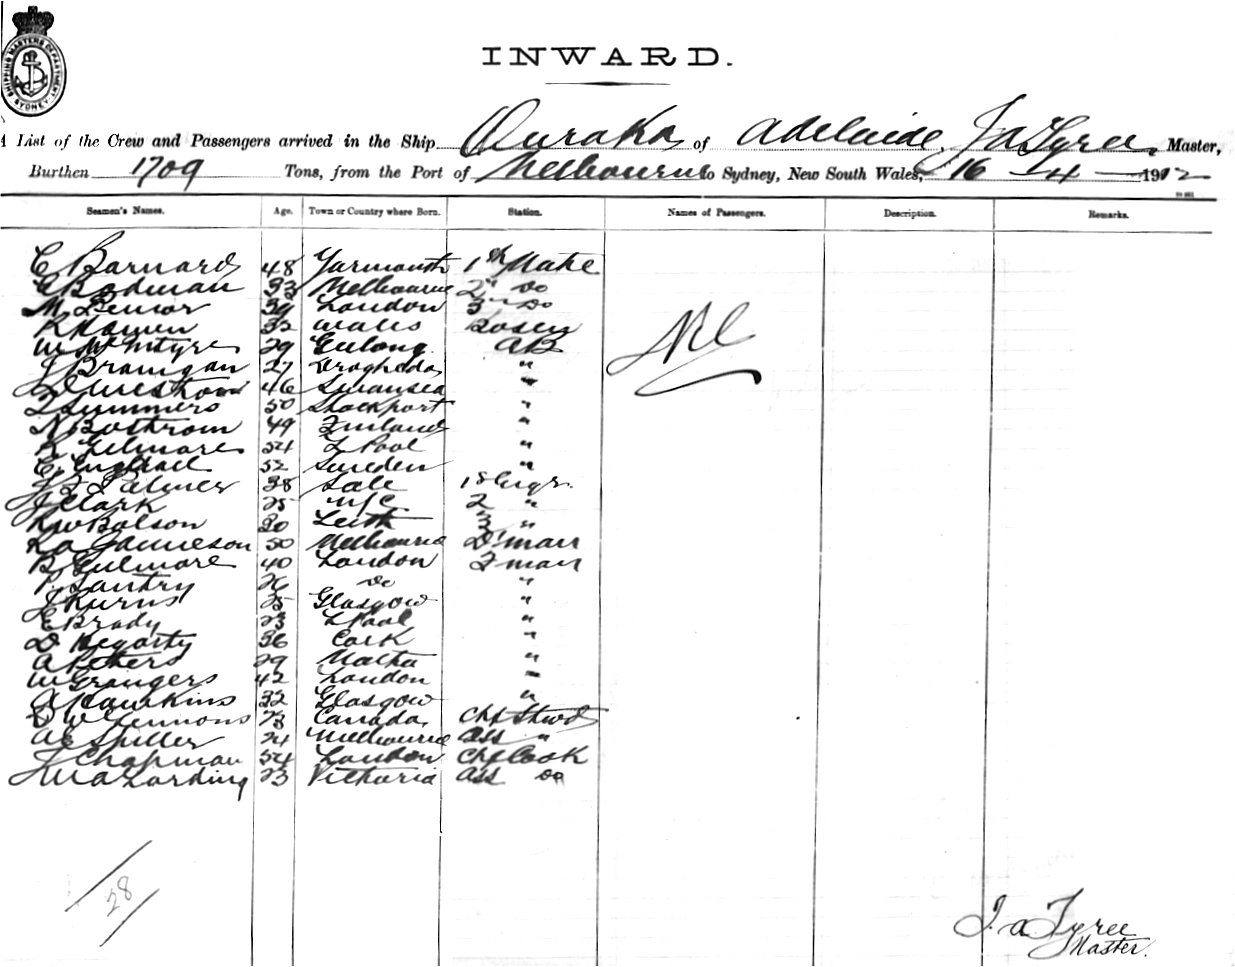 SHIPPING MASTERS DEPARTMENT SYDNEY
INWARD.
A List of the Crew and Passengers arrived in the Ship Ouraka of Adelaide, J A Tyree, Master,
Burthen 1709 Tons, from the Port of Melbourne to Sydney, New South Wales, 16 - 4 - 1912
Seamen's Names. Age. Town or Country where Born. Station. Names of Passengers. Description. Remarks.
C Barnard 48 Yarmouth 1st Mate
C Bodman 33 Melbourne 2nd Do
M 39 London 3 Do
R 32 Wales Bosen
W McIntyre 29 Geelong AB
Nil
J Branigan 27 Drogheda "
46 Swansea "
T Summers 50 Stockport "
N Bostrom 49 Finland "
R Gilmore 54 L Pool "
C 52 Sweden "
J L Palmer 38 Sale 1st Engr.
J Clark 25 N/C 2 "
R W Bolson 30 Leith 3 "
R A Jamieson 50 Melbourne D'man
B Gilmore 40 London F man
P. Santry 26 do "
J Kurns 25 Glasgow "
E Brady 23 L Pool "
D Hegarty 36 Cork "
A Peters 29 Malta "
W Grangers 42 London "
A Hawkins 32 Glasgow "
W Lennons 23 Canada Chf Stwd
A E Spiller 24 Melbourne Ass "
J Chapman 54 London Chf Cook
W A Larding 23 Victoria Ass Do
28
J. A Tyree
Master.